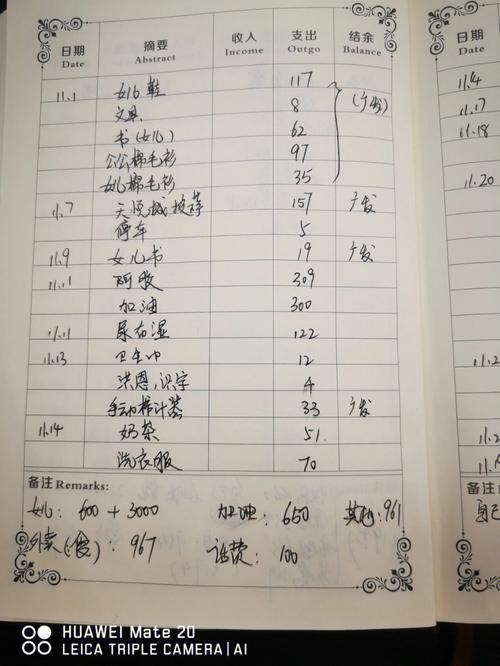 日期 摘要 收入 支出 结余
Date Abstract Income Outgo Balance
11.1 女儿鞋 117
文具 8 (广发)
书(女儿) 62
公公棉毛衫 97
女儿棉毛衫 35
11.7 天悦城 157 广发
停车 5
11.9 女儿书 19 广发
11.11 阿胶 309
加油 300
11.11 尿布湿 122
11.13 卫生巾 12
洪恩,识字 4
手动榨汁器 33 广发
11.14 奶茶 51
洗衣服 70
备注 Remarks:
女儿: 600 + 3000 加油: 650 其他: 961
(食): 967 话费: 100
日期
Date
11.4
11.17
11.18
11.20
HUAWEI Mate 20
LEICA TRIPLE CAMERA | AI